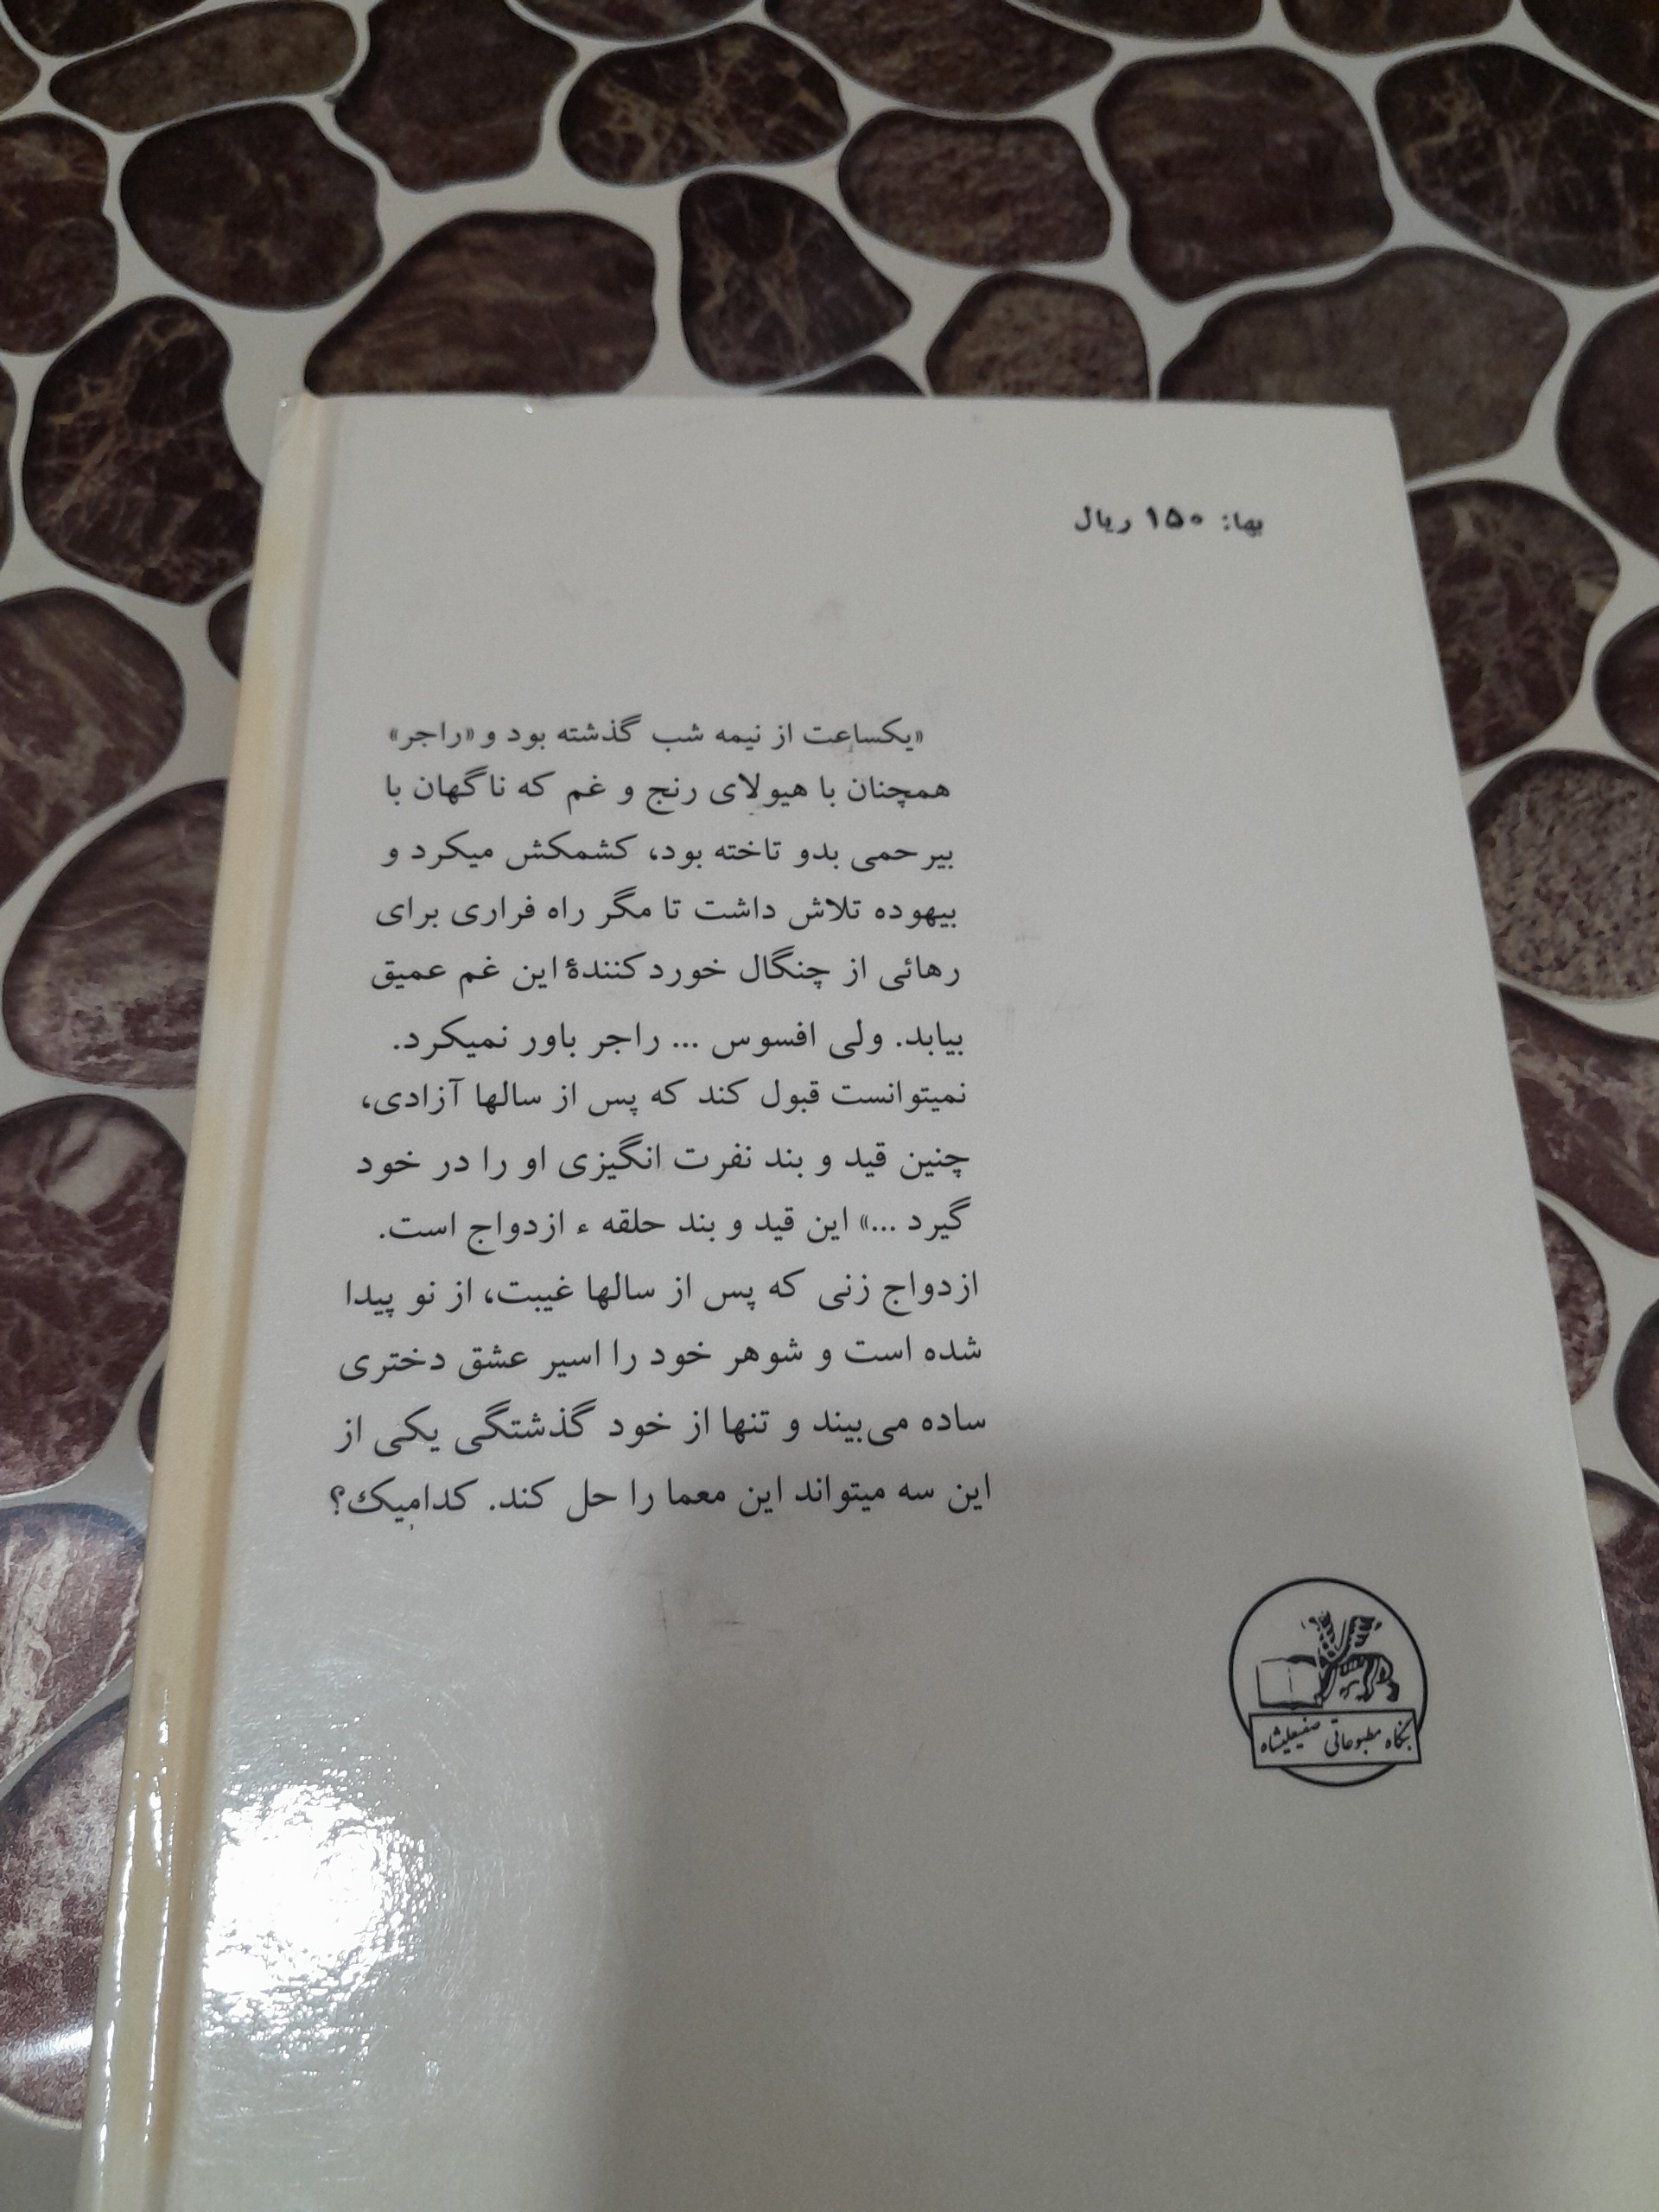 بها: ۱۵۰ ریال
«یکساعت از نیمه شب گذشته بود و «راجر»
همچنان با هیولای رنج و غم که ناگهان با
بیرحمی بدو تاخته بود، کشمکش میکرد و
بیهوده تلاش داشت تا مگر راه فراری برای
رهائی از چنگال خورد کنندهٔ این غم عمیق
بیابد. ولی افسوس ... راجر باور نمیکرد.
نمیتوانست قبول کند که پس از سالها آزادی،
چنین قید و بند نفرت انگیزی او را در خود
گیرد ...» این قید و بند حلقه ء ازدواج است.
ازدواج زنی که پس از سالها غیبت، از نو پیدا
شده است و شوهر خود را اسیر عشق دختری
ساده می‌بیند و تنها از خود گذشتگی یکی از
این سه میتواند این معما را حل کند. کدامیک؟
بنگاه مطبوعاتی صفیعلیشاه